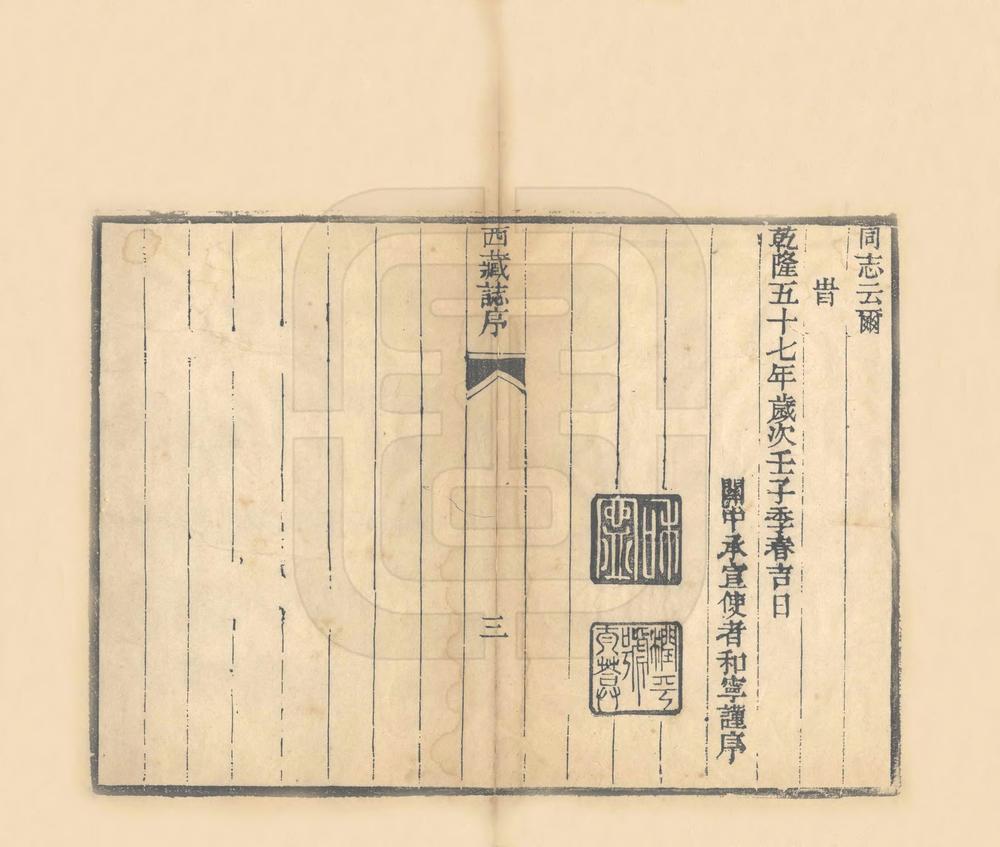 同志云爾
旹
乾隆五十七年歲次壬子季春吉日
關中承宣使者和寧謹序
和寧
西藏誌序
三